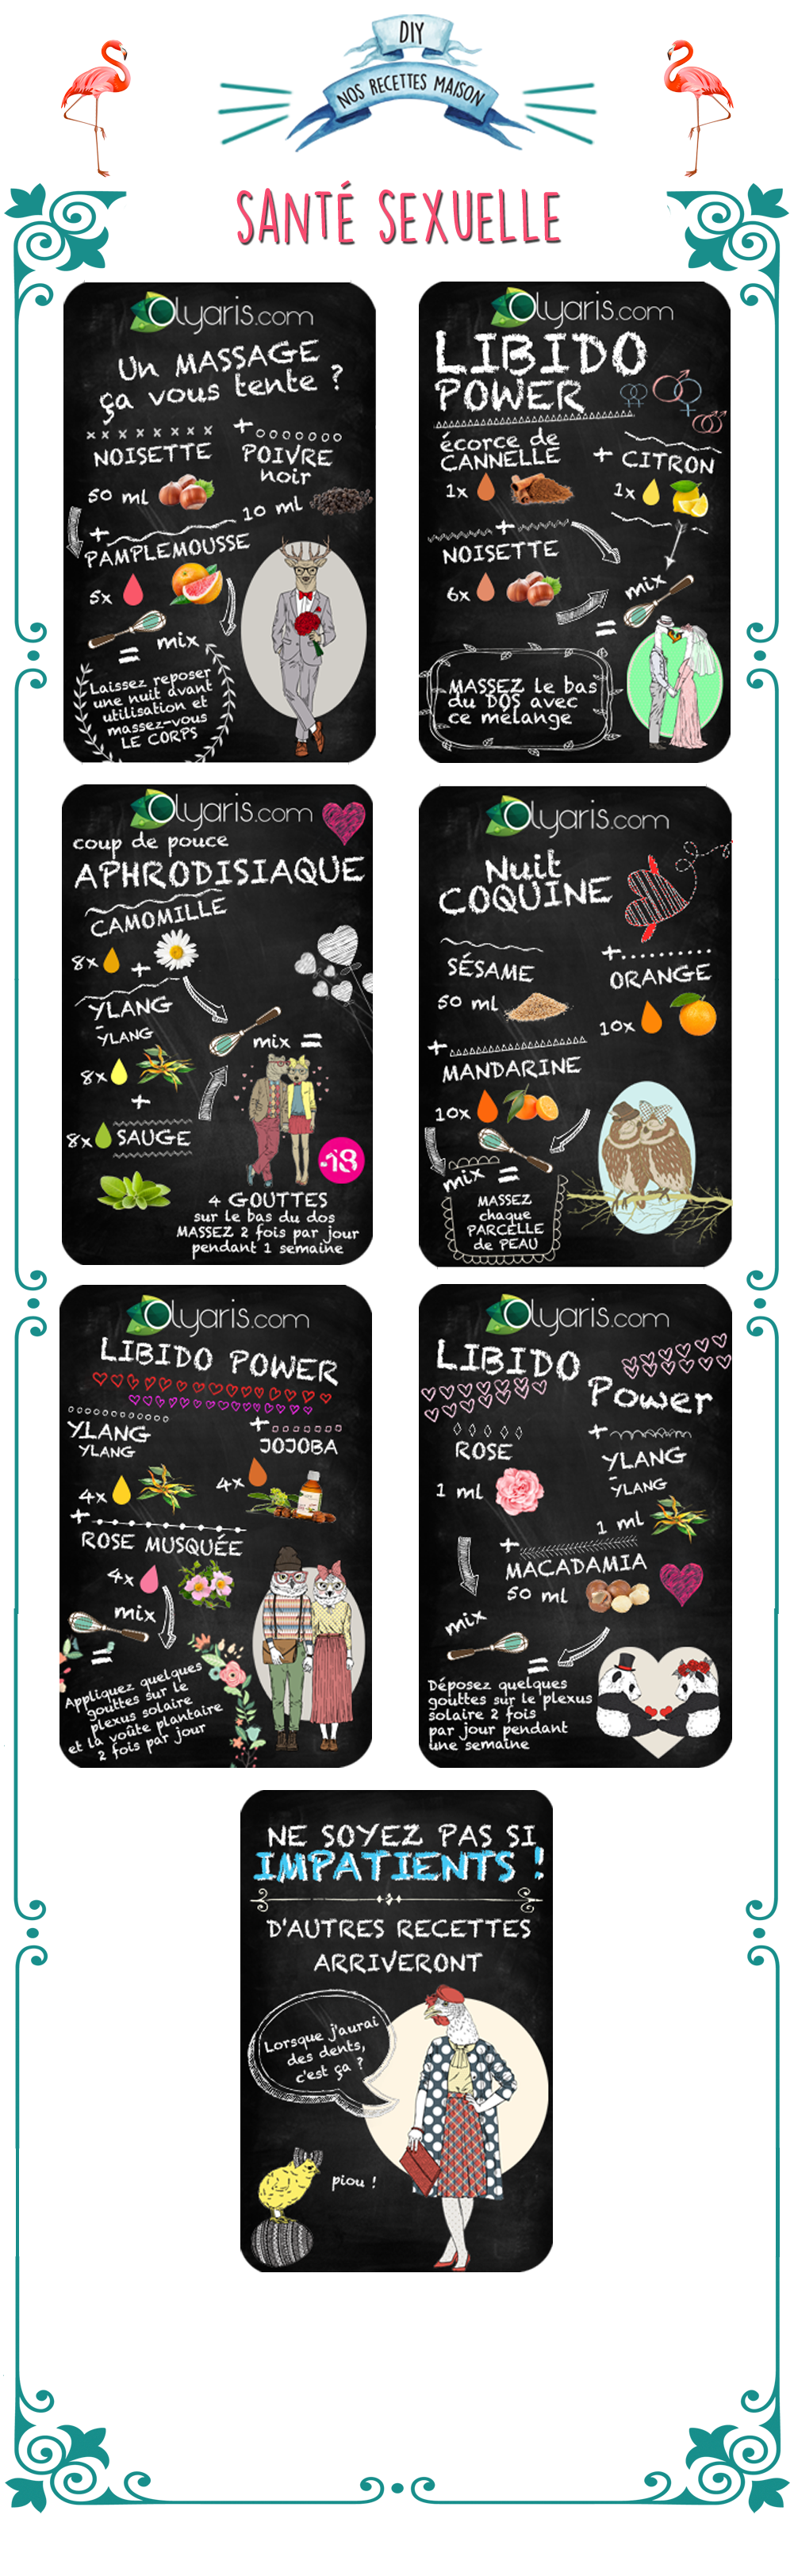 DIY
NOS RECETTES MAISON
SANTÉ SEXUELLE
Olyaris.com
Un MASSAGE
ça vous tente ?
NOISETTE
50 ml
+
POIVRE
noir
10 ml
+
PAMPLEMOUSSE
5x
mix
=
Laissez reposer
une nuit avant
utilisation et
massez-vous
LE CORPS
Olyaris.com
LIBIDO
POWER
écorce de
CANNELLE
1x
+ CITRON
1x
+
NOISETTE
6x
mix
=
MASSEZ le bas
du DOS avec
ce mélange
Olyaris.com
coup de pouce
APHRODISIAQUE
CAMOMILLE
8x
+
YLANG
-
YLANG
8x
+
8x SAUGE
mix =
-18
4 GOUTTES
sur le bas du dos
MASSEZ 2 fois par jour
pendant 1 semaine
Olyaris.com
Nuit
COQUINE
SÉSAME
50 ml
+
ORANGE
10x
+
MANDARINE
10x
mix =
MASSEZ
chaque
PARCELLE
de PEAU
Olyaris.com
LIBIDO POWER
YLANG
YLANG
4x
+
JOJOBA
4x
+
ROSE MUSQUÉE
4x
mix
=
Appliquez quelques
gouttes sur le
plexus solaire
et la voûte plantaire
2 fois par jour
Olyaris.com
LIBIDO
Power
ROSE
1 ml
+
YLANG
-
YLANG
1 ml
+
MACADAMIA
50 ml
mix
=
Déposez quelques
gouttes sur le plexus
solaire 2 fois
par jour pendant
une semaine
NE SOYEZ PAS SI
IMPATIENTS !
D'AUTRES RECETTES
ARRIVERONT
Lorsque j'aurai
des dents,
c'est ça ?
piou !